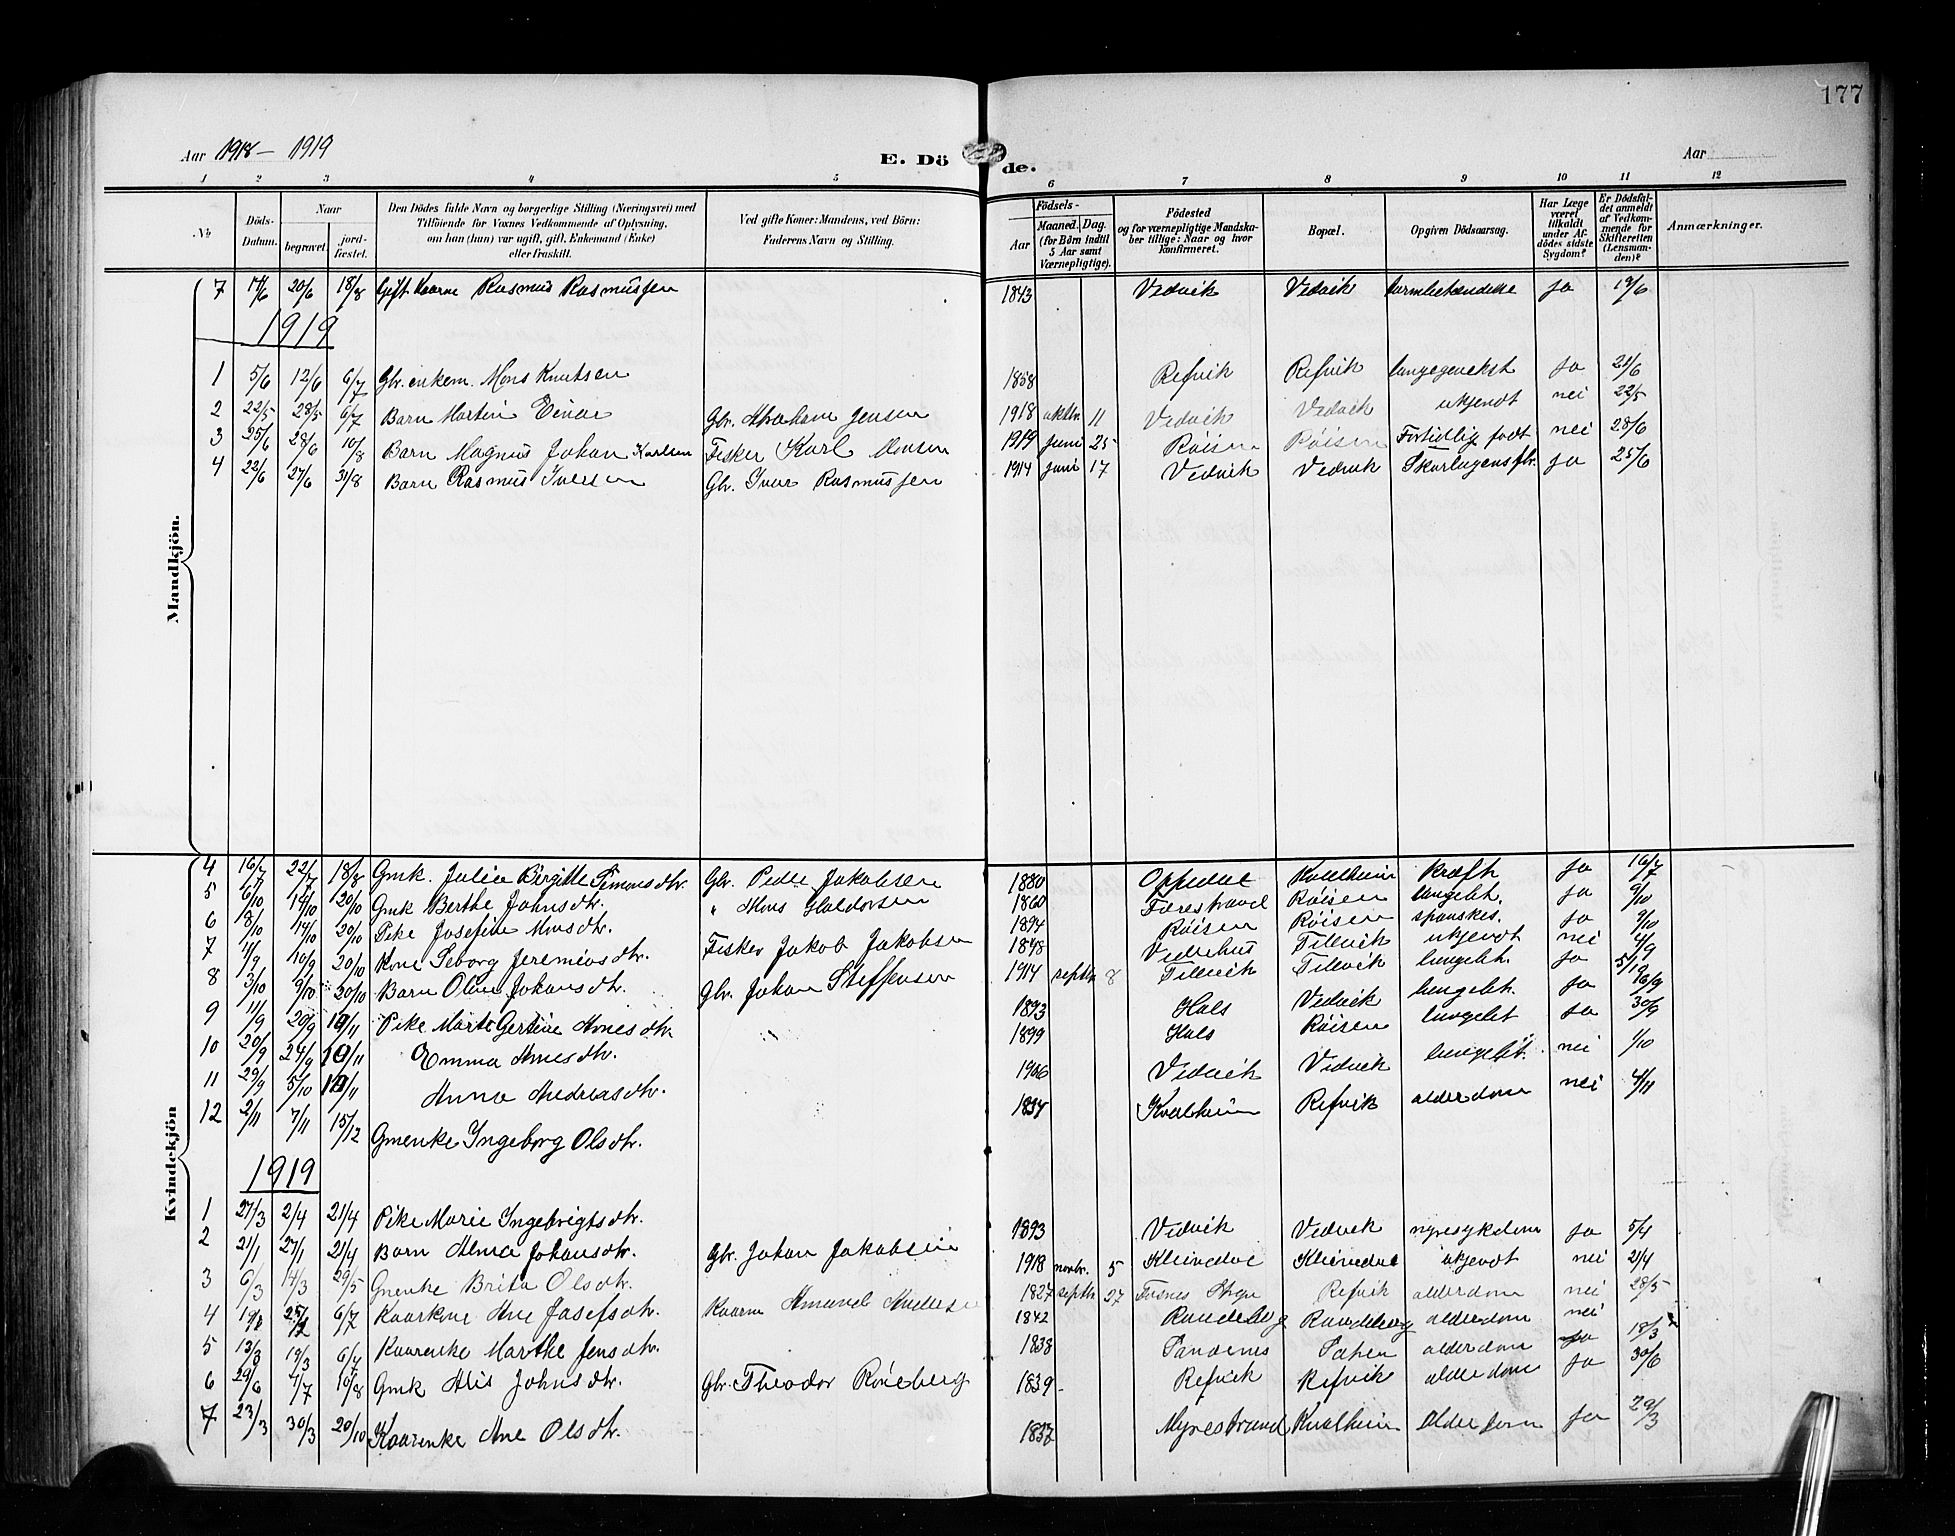 177
Aar 1918 – 1919
E. Dö de.
Aar
1 2 3 4 5 6 7 8 9 10 11 12
No
Döds-Datum.
Naar begravet. jordfæstet.
Den Dödes fulde Navn og borgerlige Stilling (Næringsvei) med Tilföiende for Voxnes Vedkommende af Oplysning, om han (hun) var ugift, gift, Enkemand (Enke) eller fraskilt.
Ved gifte Koner: Mandens, ved Börn: Faderens Navn og Stilling.
Födsels- Aar Maaned. Dag. (for Börn indtil 5 Aar samt Værnepligtige).
Födested og for værnepligtige Mandskaber tillige: Naar og hvor Konfirmeret.
Bopæl.
Opgiven Dödsaarsag.
Har Læge været tilkaldt under Afdödes sidste Sygdom?
Er Dödsfaldet anmeldt af Vedkommende for Skifteretten (Lensmanden)?
Anmærkninger.
Mandkjön.
7 17/6 20/6 18/8 Gift Kaarm Rasmus Rasmussen 1843 Vedvik Vedvik tarmbetændelse ja 19/6
1919
1 5/6 12/6 6/7 Gbr. enkem. Mons Knutsen 1858 Refvik Refvik ja 21/6
2 22/5 28/5 6/7 Barn Martin Einar Gbr. Abraham Jensen 1918 oktbr. 11 Vedvik Vedvik ukjendt nei 22/5
3 25/6 28/6 10/8 Barn Magnus Johan Karlsen Fisker Karl Monsen 1919 juni 25 Röisen Röisen Fortidlig född nei 28/6
4 22/6 27/6 31/8 Barn Rasmus Iversen Gbr. Iver Rasmussen 1914 juni 17 Vedvik Vedvik ja 25/6
Kvindekjön
4 16/7 22/7 18/8 Gmk. Julia Birgitte Simonsdtr. Gbr. Peder Jakobsen 1880 Oppedal Kvalheim kræft ja 16/7
5 6/10 14/10 20/10 Gmk Berthe Johnsdtr. " Mons Haldorsen 1860 Röisen lungebt. ja 9/10
6 8/10 14/10 20/10 Pike Josefine Monsdtr. 1894 Röisen Röisen spanskes. ja 9/10
7 4/9 10/9 20/10 Kone Seborg Jeremiasdtr. Fisker Jakob Jakobsen 1848 Vedrehus Tilevik ukjendt nei 4/9
8 3/10 9/10 20/10 Barn Oline Johansdtr. Gbr. Johan Steffensen 1914 septbr 8 Tilevik Tilevik lungebt. ja 5/10
9 11/9 20/9 10/11 Pike Marte Gertine Arnesdtr. 1893 Hals Vedvik lungebt. ja 16/9
10 20/9 24/9 10/11 Emma Arnesdtr. 1899 Hals Röisen lungebt ja 30/9
11 29/9 5/10 10/11 Anna Andreasdtr. 1906 Vedvik Vedvik lungebt. nei 1/10
12 2/11 7/11 15/12 Gmenke Ingeborg Olsdtr. 1834 Kvalheim Refvik alderdom nei 4/11
1919
1 27/3 2/4 21/4 Pike Marie Ingebrigtsdtr. 1893 Vedvik Vedvik nyresykdom ja 5/4
2 21/1 27/1 21/4 Barn Alma Johansdtr. Gbr. Johan Jakobsen 1918 novbr. 5 Kleivedal Kleivedal ukjendt nei 2/4
3 6/3 14/3 29/5 Gmenke Brita Olsdtr. 1827 septbr 27 Refvik alderdom nei 28/5
4 6/7 Kaarkone Ane Josefsdtr. Kaarm Amund Anderse 1842 Raudeberg Raudeberg alderdom nei
5 13/3 19/3 6/7 Kaarenke Marthe Jensdtr. 1838 Sandenes alderdom ja 18/3
6 29/6 4/7 10/8 Gmk Alis Johnsdtr. Gbr. Theodor Röneberg 1839 Refvik Refvik alderdom ja 30/6
7 23/3 30/3 20/10 Kaarenke Ane Olsdtr. 1837 Myrestrand Kvalheim alderdom ja 29/3